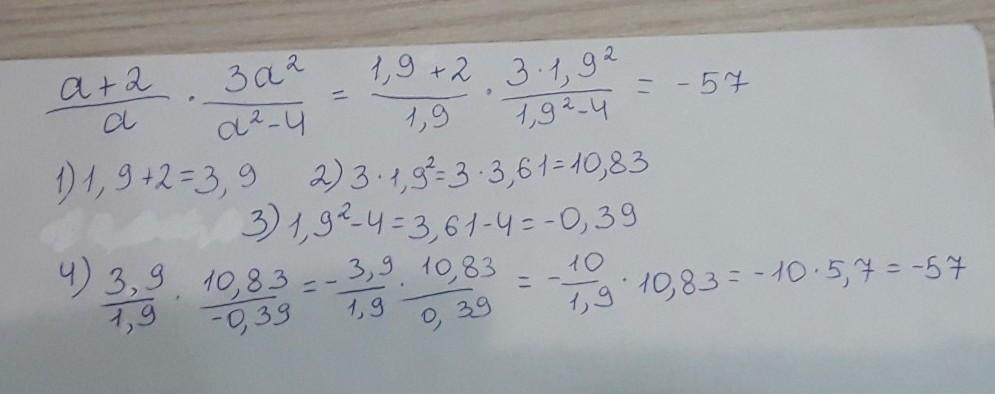 (a+2)/a · 3a²/(a²-4) = (1,9+2)/1,9 · (3·1,9²)/(1,9²-4) = -57
1) 1,9+2=3,9 2) 3·1,9²=3·3,61=10,83
3) 1,9²-4=3,61-4=-0,39
4) 3,9/1,9 · 10,83/-0,39 = -3,9/1,9 · 10,83/0,39 = -10/1,9 · 10,83 = -10·5,7 = -57